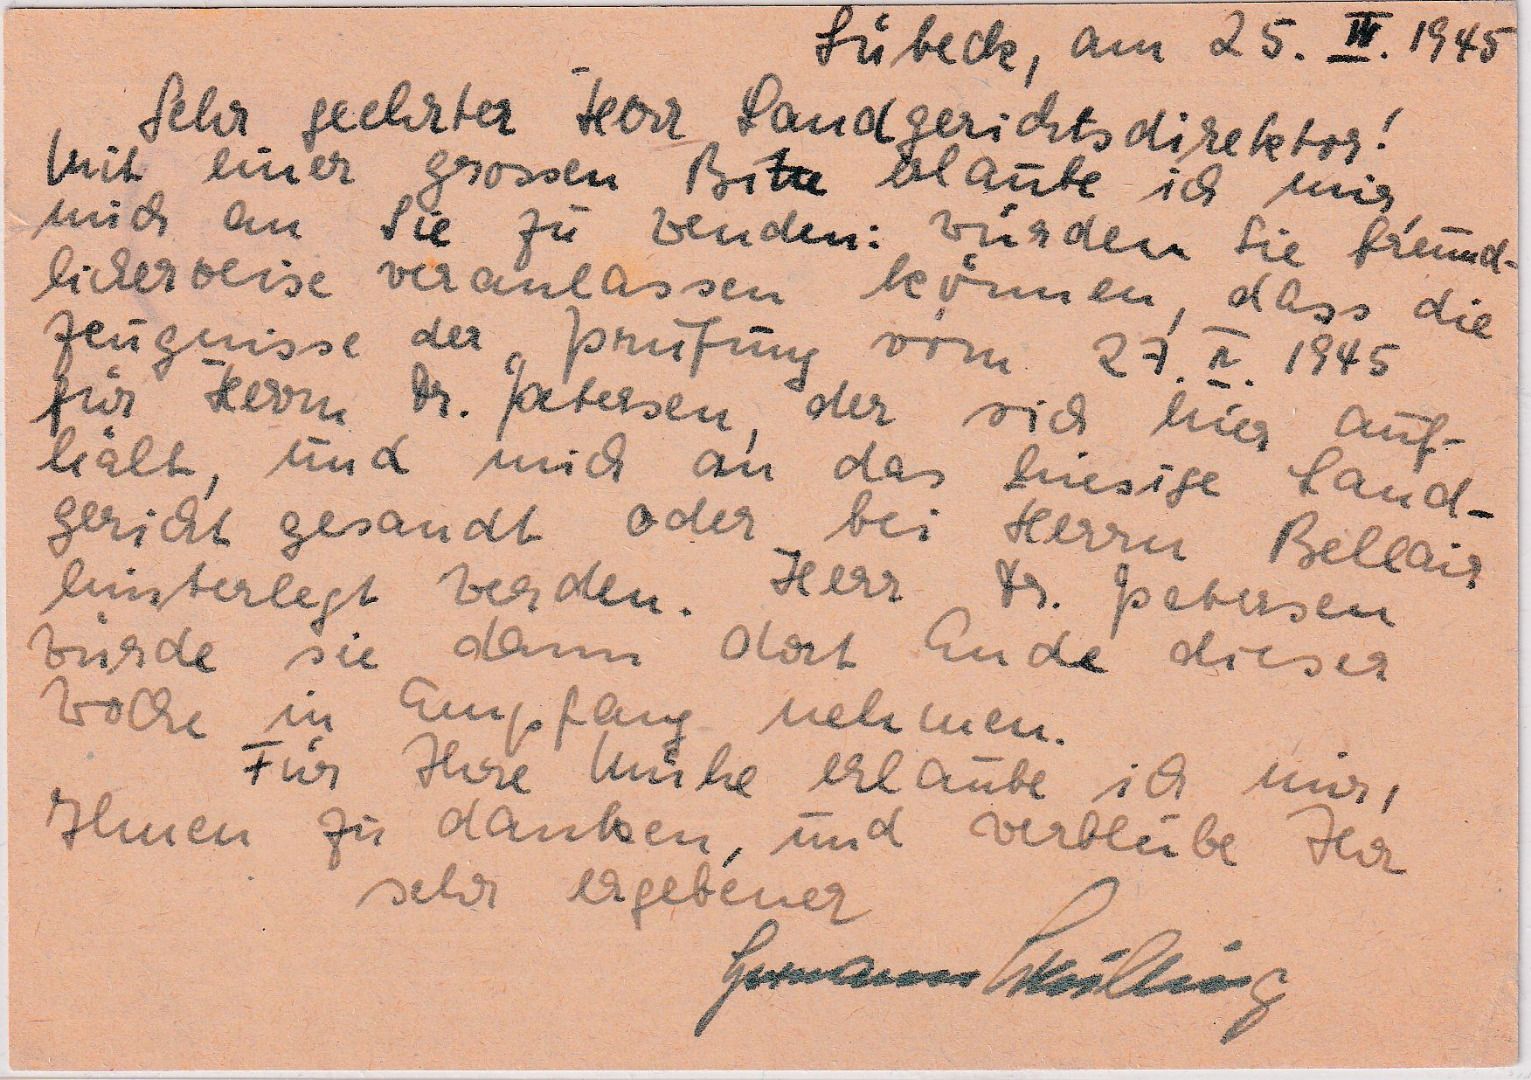 Lübeck, am 25. IV. 1945
Sehr geehrter Herr Landgerichtsdirektor!
Mit einer grossen Bitte erlaube ich mir,
mich an Sie zu wenden: würden Sie freund-
licherweise veranlassen können, dass die
Zeugnisse der Prüfung vom 27. II. 1945
für Herrn Dr. Petersen, der sich hier auf-
hält, und mich an das hiesige Land-
gericht gesandt oder bei Herrn Bellair
hinterlegt werden. Herr Dr. Petersen
würde sie dann dort Ende dieser
Woche in Empfang nehmen.
Für Ihre Mühe erlaube ich mir,
Ihnen zu danken, und verbleibe Ihr
sehr ergebener